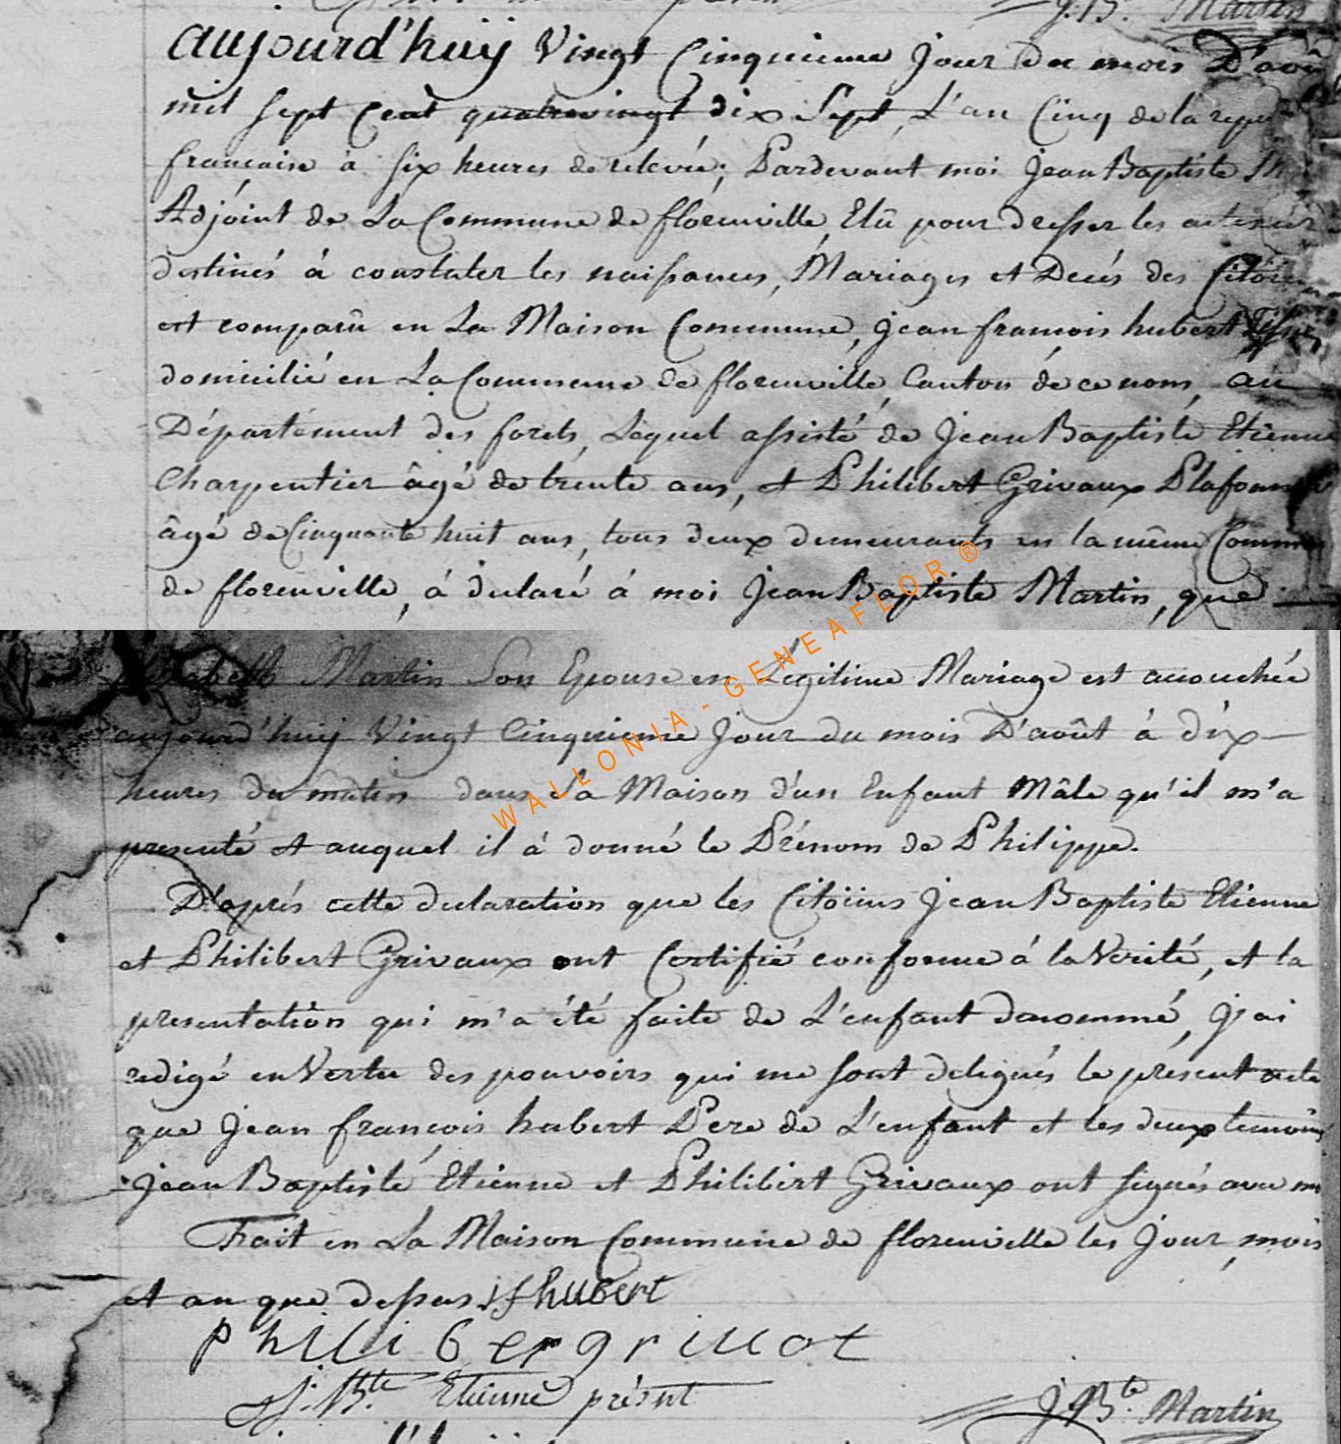 J. B. Martin
aujourd'huÿ Vingt Cinquieme jour du mois D'août
mil sept Cent quatrevingt dix Sept, L'an Cinq de la repu
francaise à six heures de relevée; Pardevant moi Jean Baptiste
Adjoint de La Commune de florenville, Elû pour dresser les actes
destinés à constater les naissances, Mariages et Decés des Citoiens
est comparû en La Maison Commune, jean francois hubert
domicilié en La Commune de florenville, Canton de ce nom, au
Département des forets, Lequel assisté de Jean Baptiste Etienne
Charpentier âgé de trente ans, et Philibert Grivaux Plafonneur
âgé de Cinquante huit ans, tous deux demeurants en la même Commune
de florenville, à declaré à moi Jean Baptiste Martin, que
Elisabeth Martin Son Epouse en Légitime Mariage est accouchée
aujourd'huÿ Vingt Cinquieme Jour du mois D'août à dix
heures du matin dans Sa Maison d'un Enfant Mâle qu'il m'a
presenté et auquel il à donné le Prénom de Philippe.
D'aprés cette declaration que les Citoiens Jean Baptiste Etienne
et Philibert Grivaux ont Certifié conforme à la Verité, et la
presentation qui m'a été faite de L'enfant denommé, j'ai
redigé en Vertu des pouvoirs qui me sont delegués le présent acte
que Jean francois hubert Pere de L'enfant et les deux temoins
Jean Baptiste Etienne et Philibert Grivaux ont signés avec moi
Fait en La Maison Commune de florenville les Jour, mois
et an que dessus jfhubert
philibergrivot
J. Bte Etienne présent
J. Bte Martin
WALLONIA - GENEAFLOR ®